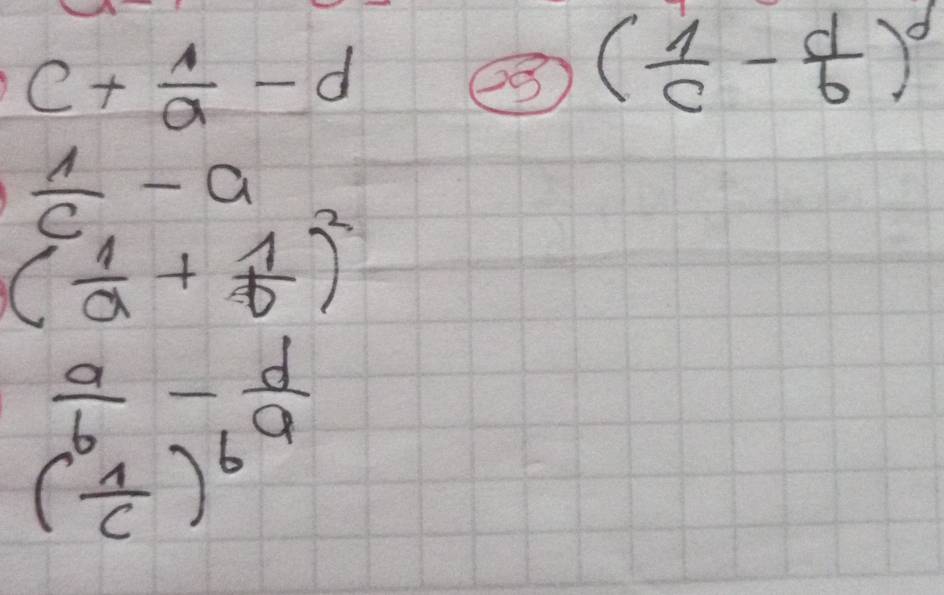 c + 1/a - d
1/c - a
(1/a + 1/b)²
a/b - d/a
(1/c)^b
(1/c - d/b)^d